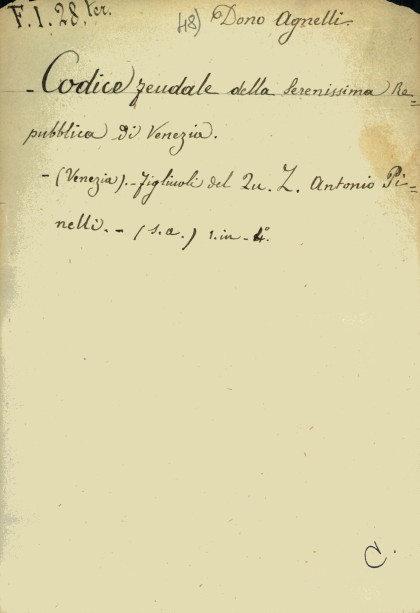 F. 1. 28. ter. 48) Dono Agnelli.
- Codice feudale della Serenissima Re=
pubblica di Venezia.
- (Venezia). - Figliuoli del Qu. Z. Antonio Pi=
nelli. - (s.a.) 1. in - 4º.
C.